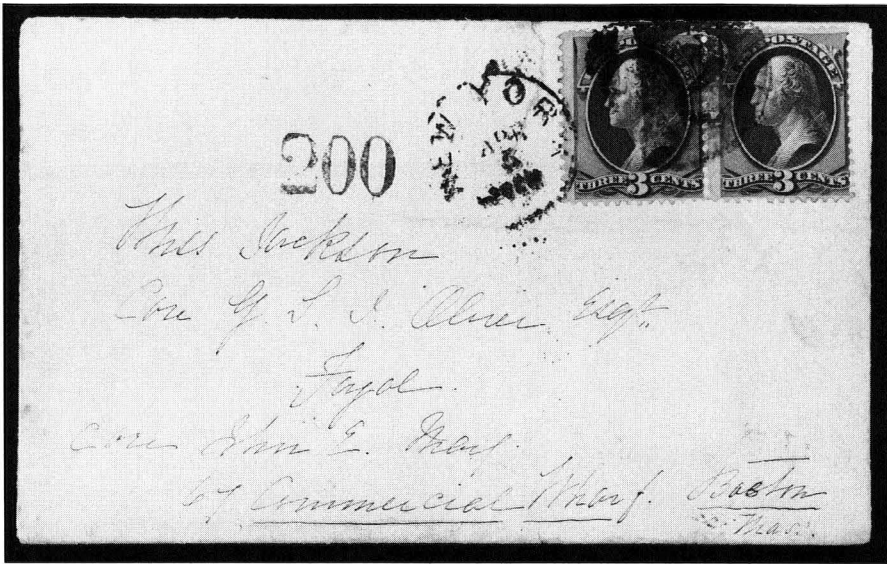 NEW YORK
APR
U.S. POSTAGE
THREE 3 CENTS
THREE 3 CENTS
200
Miss Jackson
Care G. S. J. Oliver Esqr.
Fayal.
Care John E. May
67 Commercial Wharf. Boston
Mass.